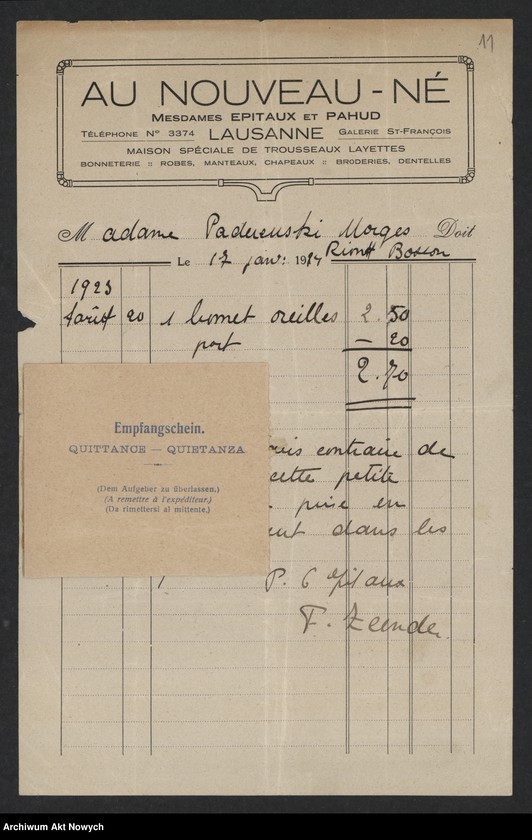 11
AU NOUVEAU-NÉ
MESDAMES EPITAUX ET PAHUD
TÉLÉPHONE Nº 3374 LAUSANNE GALERIE ST-FRANÇOIS
MAISON SPÉCIALE DE TROUSSEAUX LAYETTES
BONNETERIE :: ROBES, MANTEAUX, CHAPEAUX :: BRODERIES, DENTELLES
Madame Paderewski Morges Doit
Le 17 janv: 1924 Riond Bosson
1923
20 1 bonnet oreilles 2.50
port - 20
2.70
Empfangschein.
QUITTANCE — QUIETANZA.
(Dem Aufgeber zu überlassen.)
(A remettre à l'expéditeur.)
(Da rimettersi al mittente.)
contraire de
cette petite
prise en
dans les
P. Epitaux
F. Zeender.
Archiwum Akt Nowych